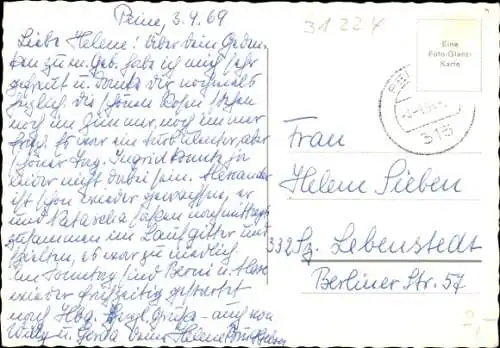 Peine, 3.4.69
Liebe Helene! Über dein Geden-
ken zu m. Geb. habe ich mich sehr
gefreut u. danke dir nochmals
herzlich. Die schönen Rosen stehen
noch im Zimmer, noch immer
Es war ein turbulenter, aber
schöner Tag. Ingrid konnte ja
leider nicht dabei sein. Alexander
ist schon wieder gewachsen, er
und Natascha saßen nachmittags
zusammen im Laufgitter und
spielten, es war zu niedlich
Am Sonntag sind Berni u.
wieder frühzeitig gestartet
nach Hbg. Herzl. Grüße auch von
Willy u. Gerda deine Helene
31224
Eine
Foto-Glanz-
Karte
315
Frau
Helene Sieben
332 Sz. Lebenstedt
Berliner Str. 57
2,-